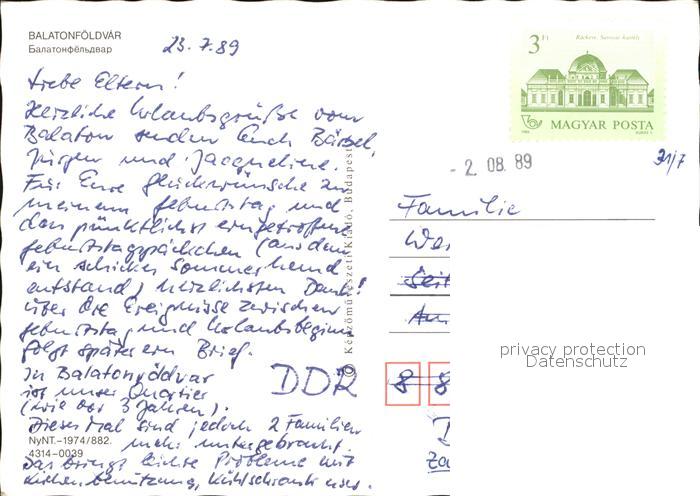 BALATONFÖLDVÁR
Балатонфёльдвар
23.7.89
Liebe Eltern!
Herzliche Urlaubsgrüße vom
Balaton senden Euch Bärbel,
Jürgen und Jacqueline.
Für Eure Glückwünsche zu
meinem Geburtstag und
das pünktlichst eingetroffene
Geburtstagspäckchen (aus dem
ein schickes Sommerhemd
entstand) herzlichsten Dank!
Über die Ereignisse zwischen
Geburtstag und Urlaubsbeginn
folgt später ein Brief.
In Balatonföldvar
ist unser Quartier
(wie vor 3 Jahren).
Dieses Mal sind jedoch 2 Familien
mehr untergebracht.
Das bringt leichte Probleme mit
Küchenbenutzung, Kühlschrank usw.
NyNT.-1974/882.
4314-0039
© Képzőművészeti Kiadó, Budapest
3 Ft
Ráckeve, Savoyai kastély
MAGYAR POSTA
- 2. 08. 89
31/7
Familie
DDR
8 8
privacy protection
Datenschutz